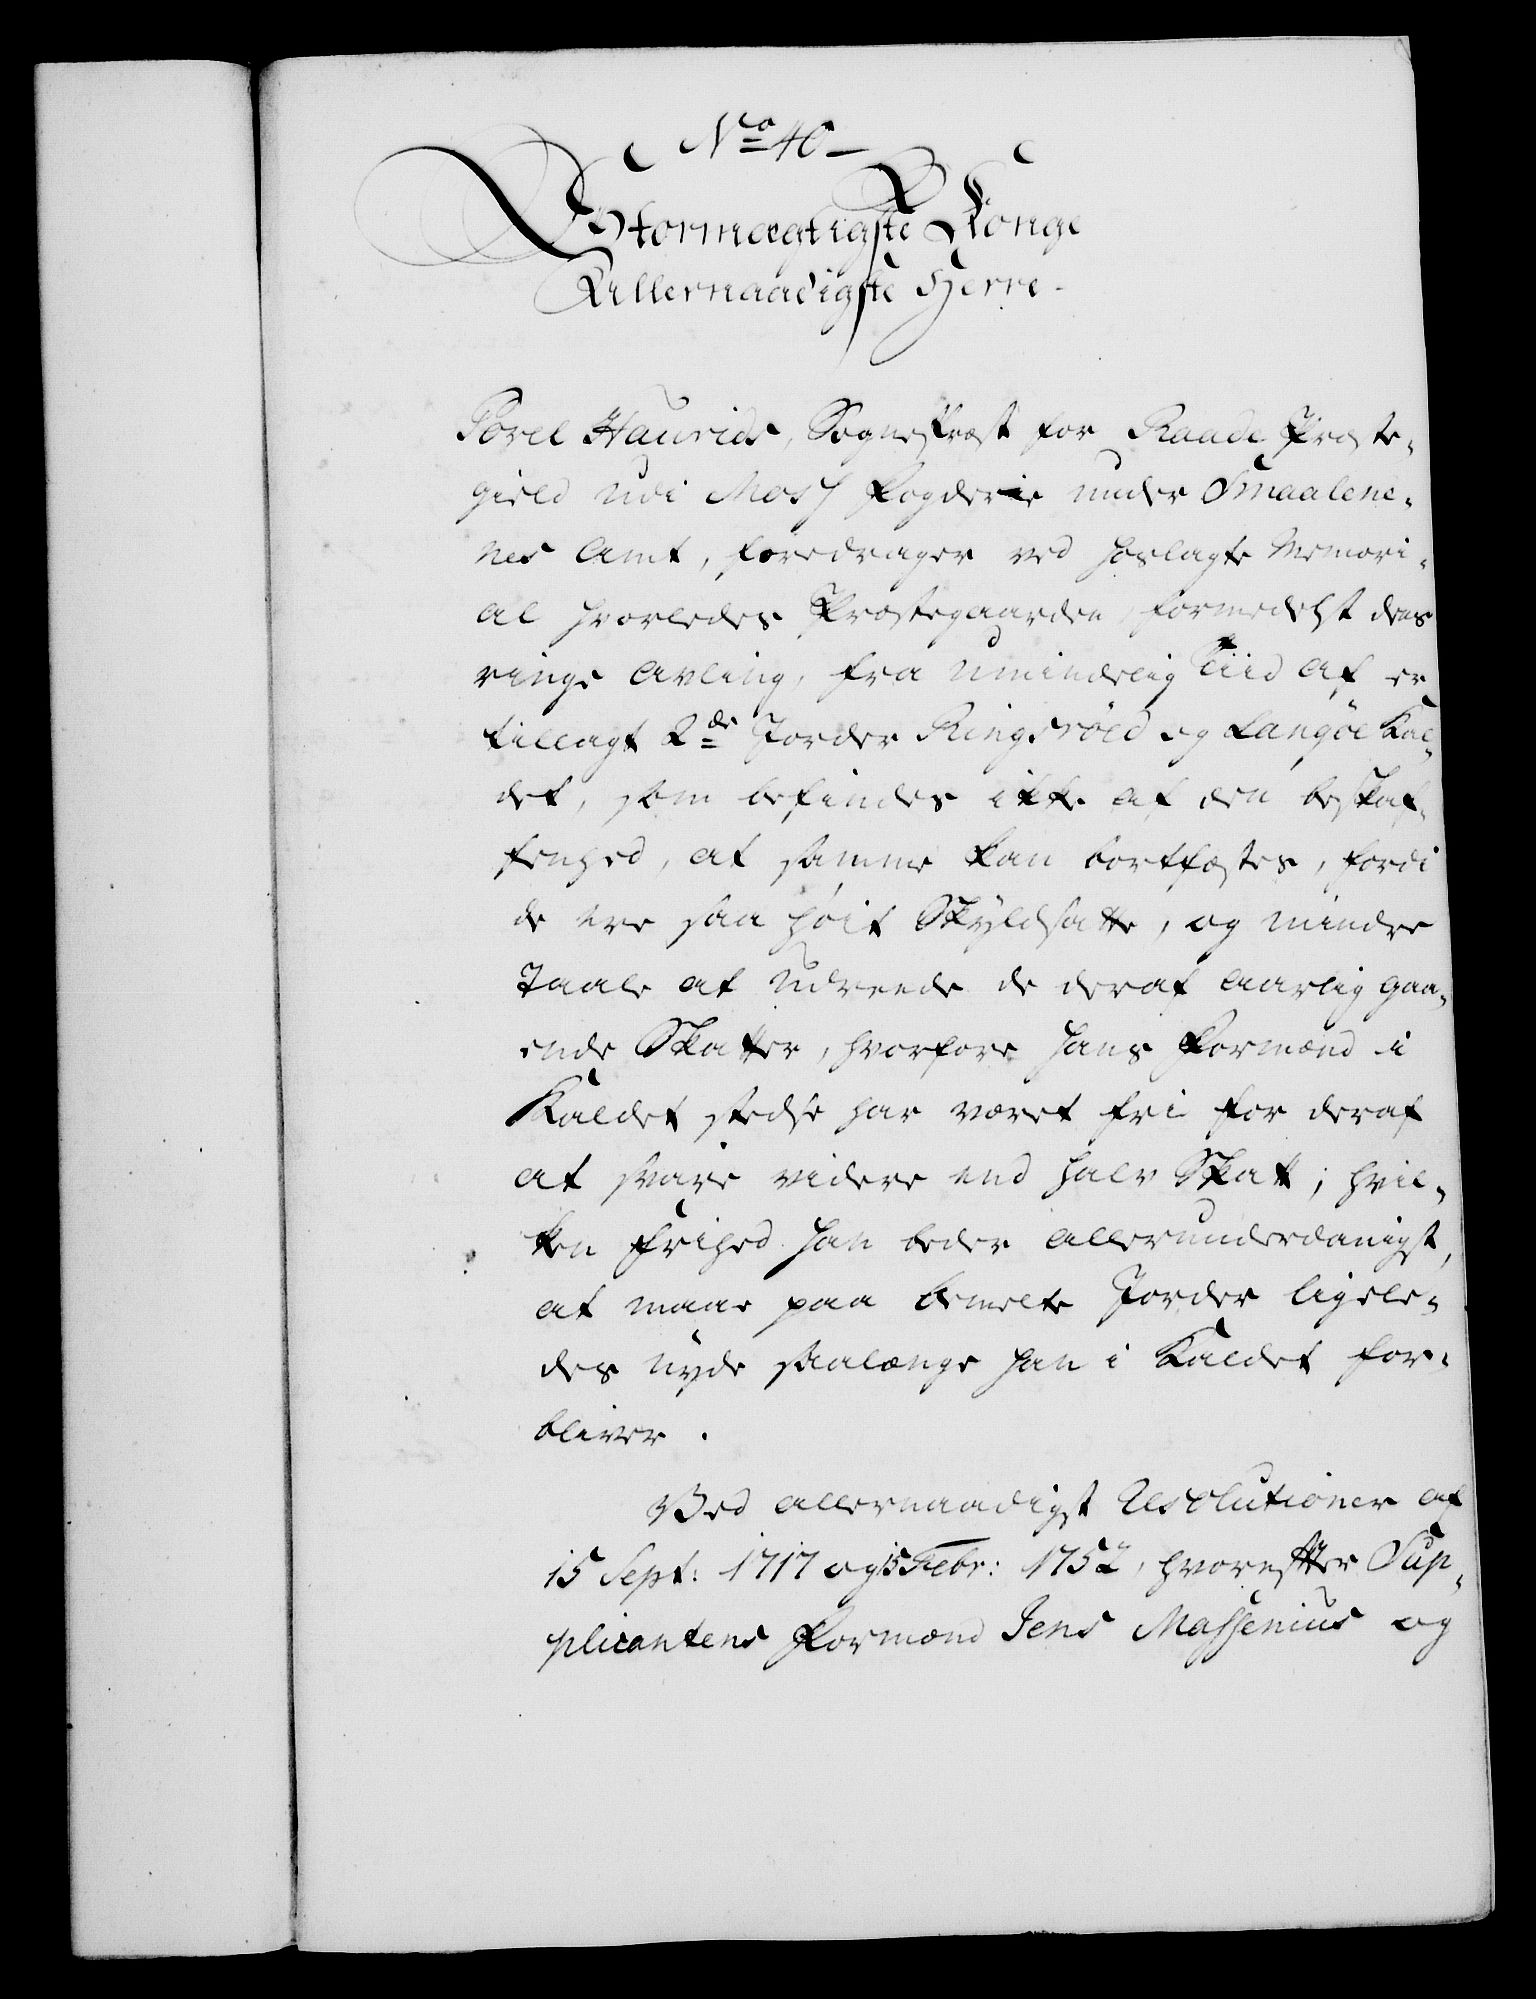 No 40
Stormægtigste Konge
Allernaadigste Herre.
Povel Haurids, Sognepræst for Raade Præste-
gield udi Moss Fogderie under Smaalene-
nes Amt, foredrager ved hoslagte Memori-
al hvorledes Præstegaarden, formedelst dens
ringe avling, fra umindelig Tiid af er
tillagt 2de Jorder Ringsröed og Langöe Kal-
det, som befindes ikke af den beskaf-
fenhed, at samme kan bortfæstes, fordi
de ere saa høit Skyldsatte, og mindre
Taale at udreede de deraf aarlig gaa-
ende Skatter, hvorfore hans Formænd i
Kaldet stedse har været fri for deraf
at svare videre end halv Skatt; hvil-
ken frihed han beder allerunderdanigst,
at maae paa bemelte Jorder ligele-
des nyde saalænge han i Kaldet for-
bliver.
Ved allernaadigst Resolutioner af
15 Sept: 1717 og 15 Febr: 1752, hvorefter Sup-
plicantens Formænd Jens Massenius og